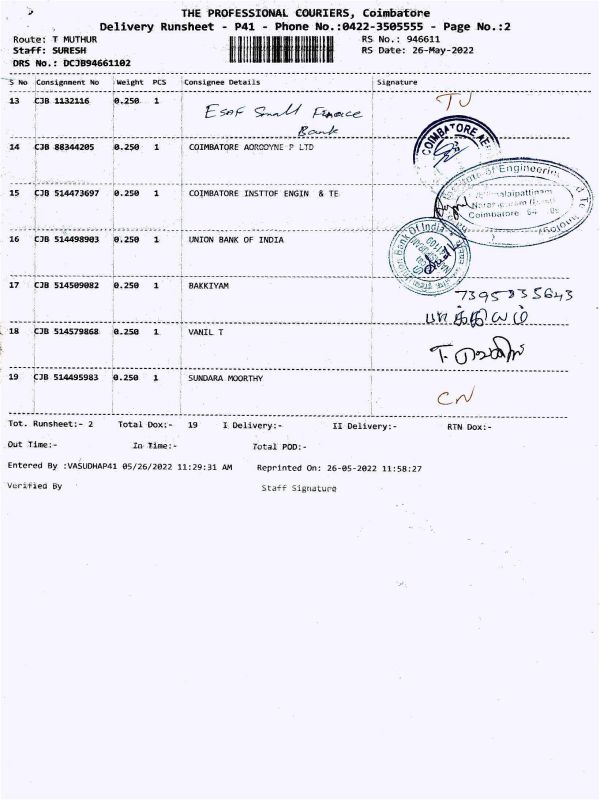 THE PROFESSIONAL COURIERS, Coimbatore
Delivery Runsheet - P41 - Phone No.:0422-3505555 - Page No.:2
Route: T MUTHUR RS No.: 946611
Staff: SURESH RS Date: 26-May-2022
DRS No.: DCJB94661102
S No Consignment No Weight PCS Consignee Details Signature
13 CJB 1132116 0.250 1 ESAF Small Finance TU
Bank
14 CJB 88344205 0.250 1 COIMBATORE AORODYNE P LTD
COIMBATORE
15 CJB 514473697 0.250 1 COIMBATORE INSTTOF ENGIN & TE
of Engineering
Coimbatore
16 CJB 514498903 0.250 1 UNION BANK OF INDIA
Union Bank Of India
17 CJB 514509082 0.250 1 BAKKIYAM
7395835643
18 CJB 514579868 0.250 1 VANIL T
19 CJB 514495983 0.250 1 SUNDARA MOORTHY
CN
Tot. Runsheet:- 2 Total Dox:- 19 I Delivery:- II Delivery:- RTN Dox:-
Out Time:- In Time:- Total POD:-
Entered By :VASUDHAP41 05/26/2022 11:29:31 AM Reprinted On: 26-05-2022 11:58:27
Verified By Staff Signature